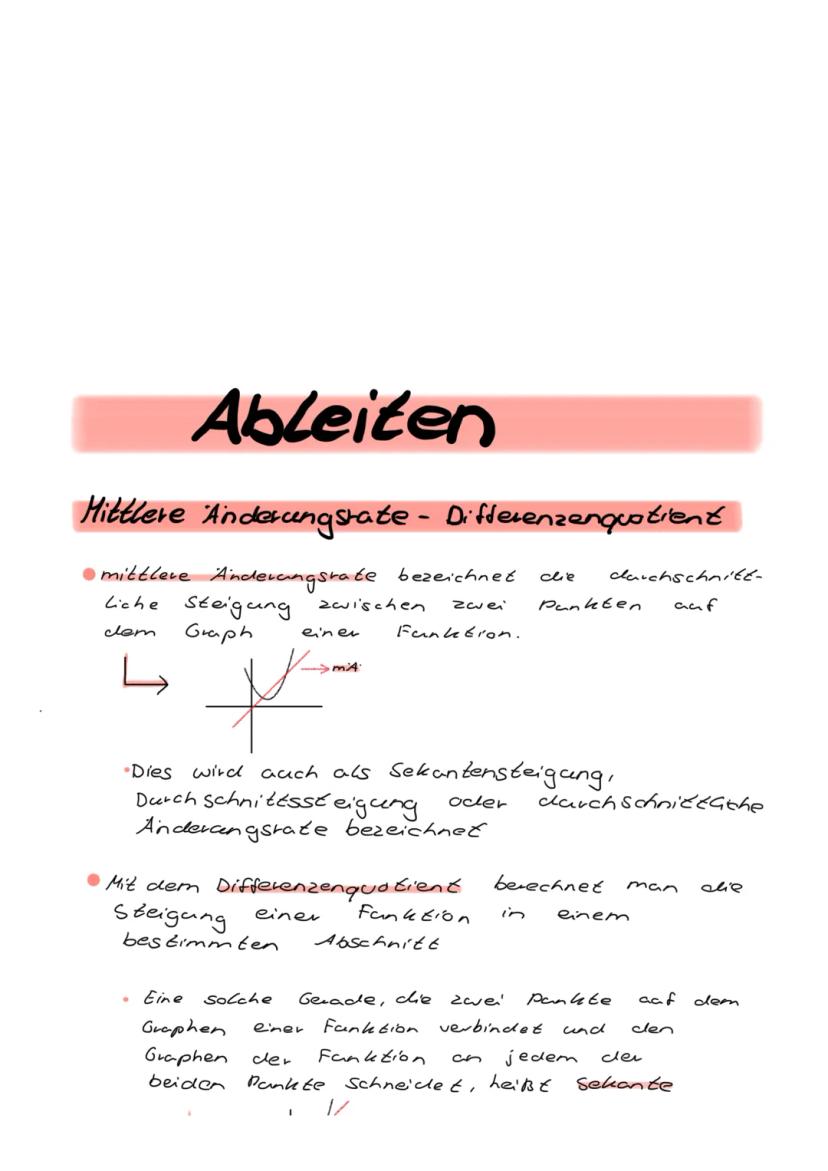 Ableiten
Mittlere Änderungsrate - Differenzenquotient
mittlere Änderungsrate bezeichnet die durchschnitt-
liche Steigung zwischen zwei Punkten auf
dem Graph einer Funktion.
mÄ
Dies wird auch als Sekantensteigung,
Durchschnittssteigung oder durchschnittliche
Änderungsrate bezeichnet
Mit dem Differenzenquotient berechnet man die
Steigung einer Funktion in einem
bestimmten Abschnitt
Eine solche Gerade, die zwei Punkte auf dem
Graphen einer Funktion verbindet und den
Graphen der Funktion an jedem der
beiden Punkte schneidet, heißt Sekante